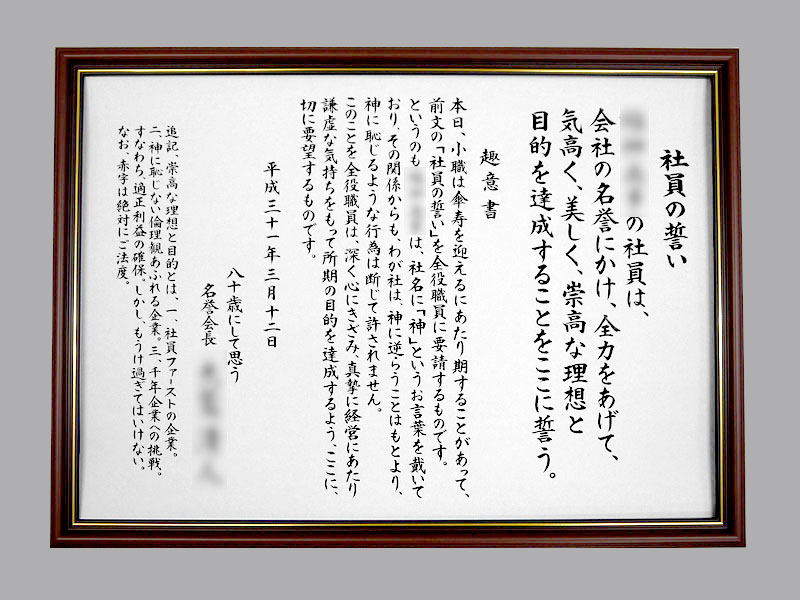 社員の誓い
の社員は、
会社の名誉にかけ、全力をあげて、
気高く、美しく、崇高な理想と
目的を達成することをここに誓う。
趣意書
本日、小職は傘寿を迎えるにあたり期することがあって、
前文の「社員の誓い」を全役職員に要請するものです。
というのも は、社名に「神」というお言葉を戴いて
おり、その関係からも、わが社は、神に逆らうことはもとより、
神に恥じるような行為は断じて許されません。
このことを全役職員は、深く心にきざみ、真摯に経営にあたり
謙虚な気持ちをもって所期の目的を達成するよう、ここに、
切に要望するものです。
平成三十一年三月十二日
八十歳にして思う
名誉会長
追記、崇高な理想と目的とは、一、社員ファーストの企業。
二、神に恥じない倫理観あふれる企業。三、千年企業への挑戦。
すなわち、適正利益の確保、しかし、もうけ過ぎてはいけない。
なお、赤字は絶対にご法度。